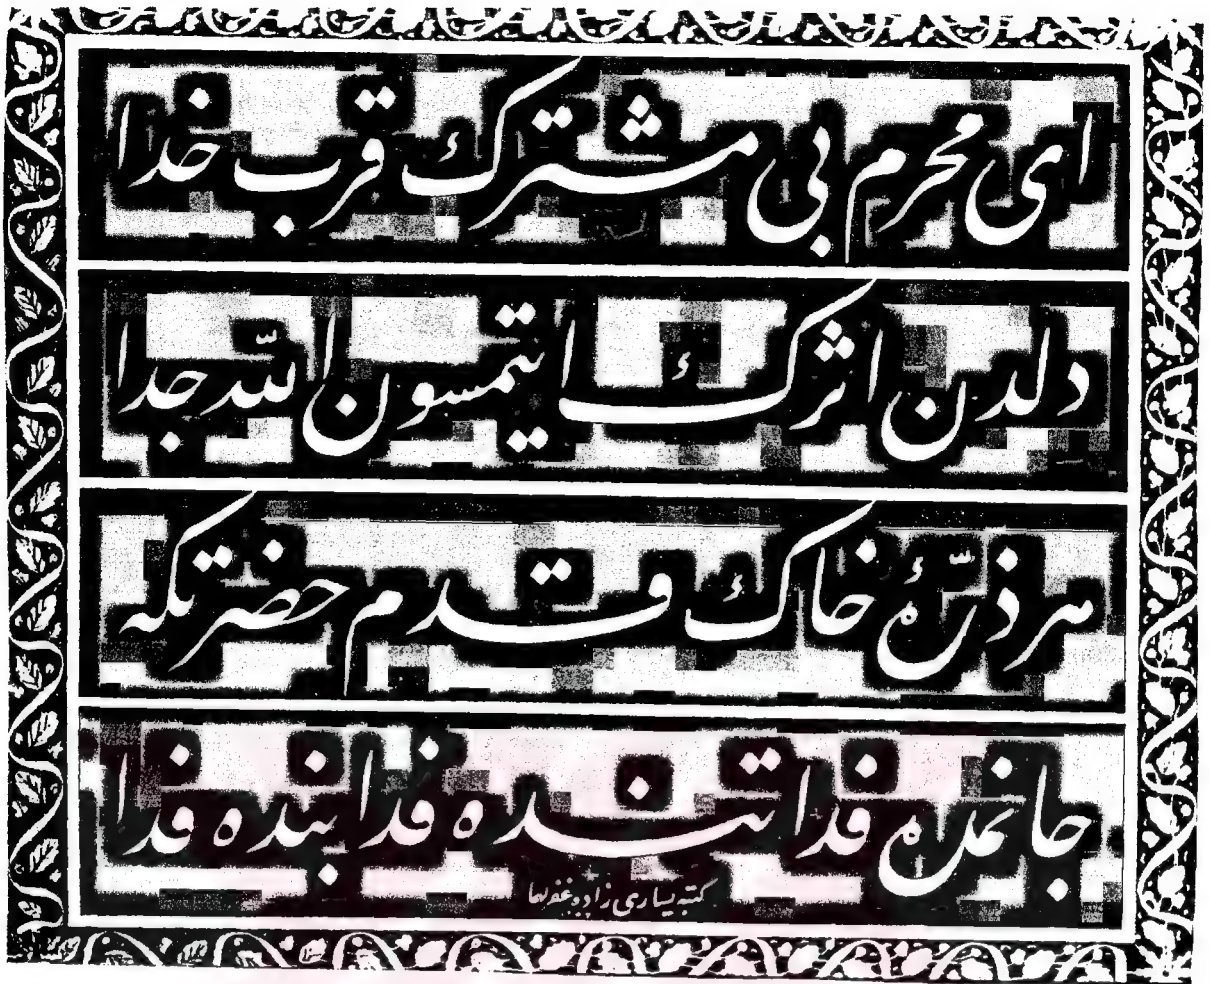 ای محرم بی مشترك قرب خدا
دلدن اثرك ایتمسون الله جدا
هر ذرهٔ خاك قدم حضرتكه
جانمده فدا تنده فدا بنده فدا
كتبه یساری زاده غفرلهما